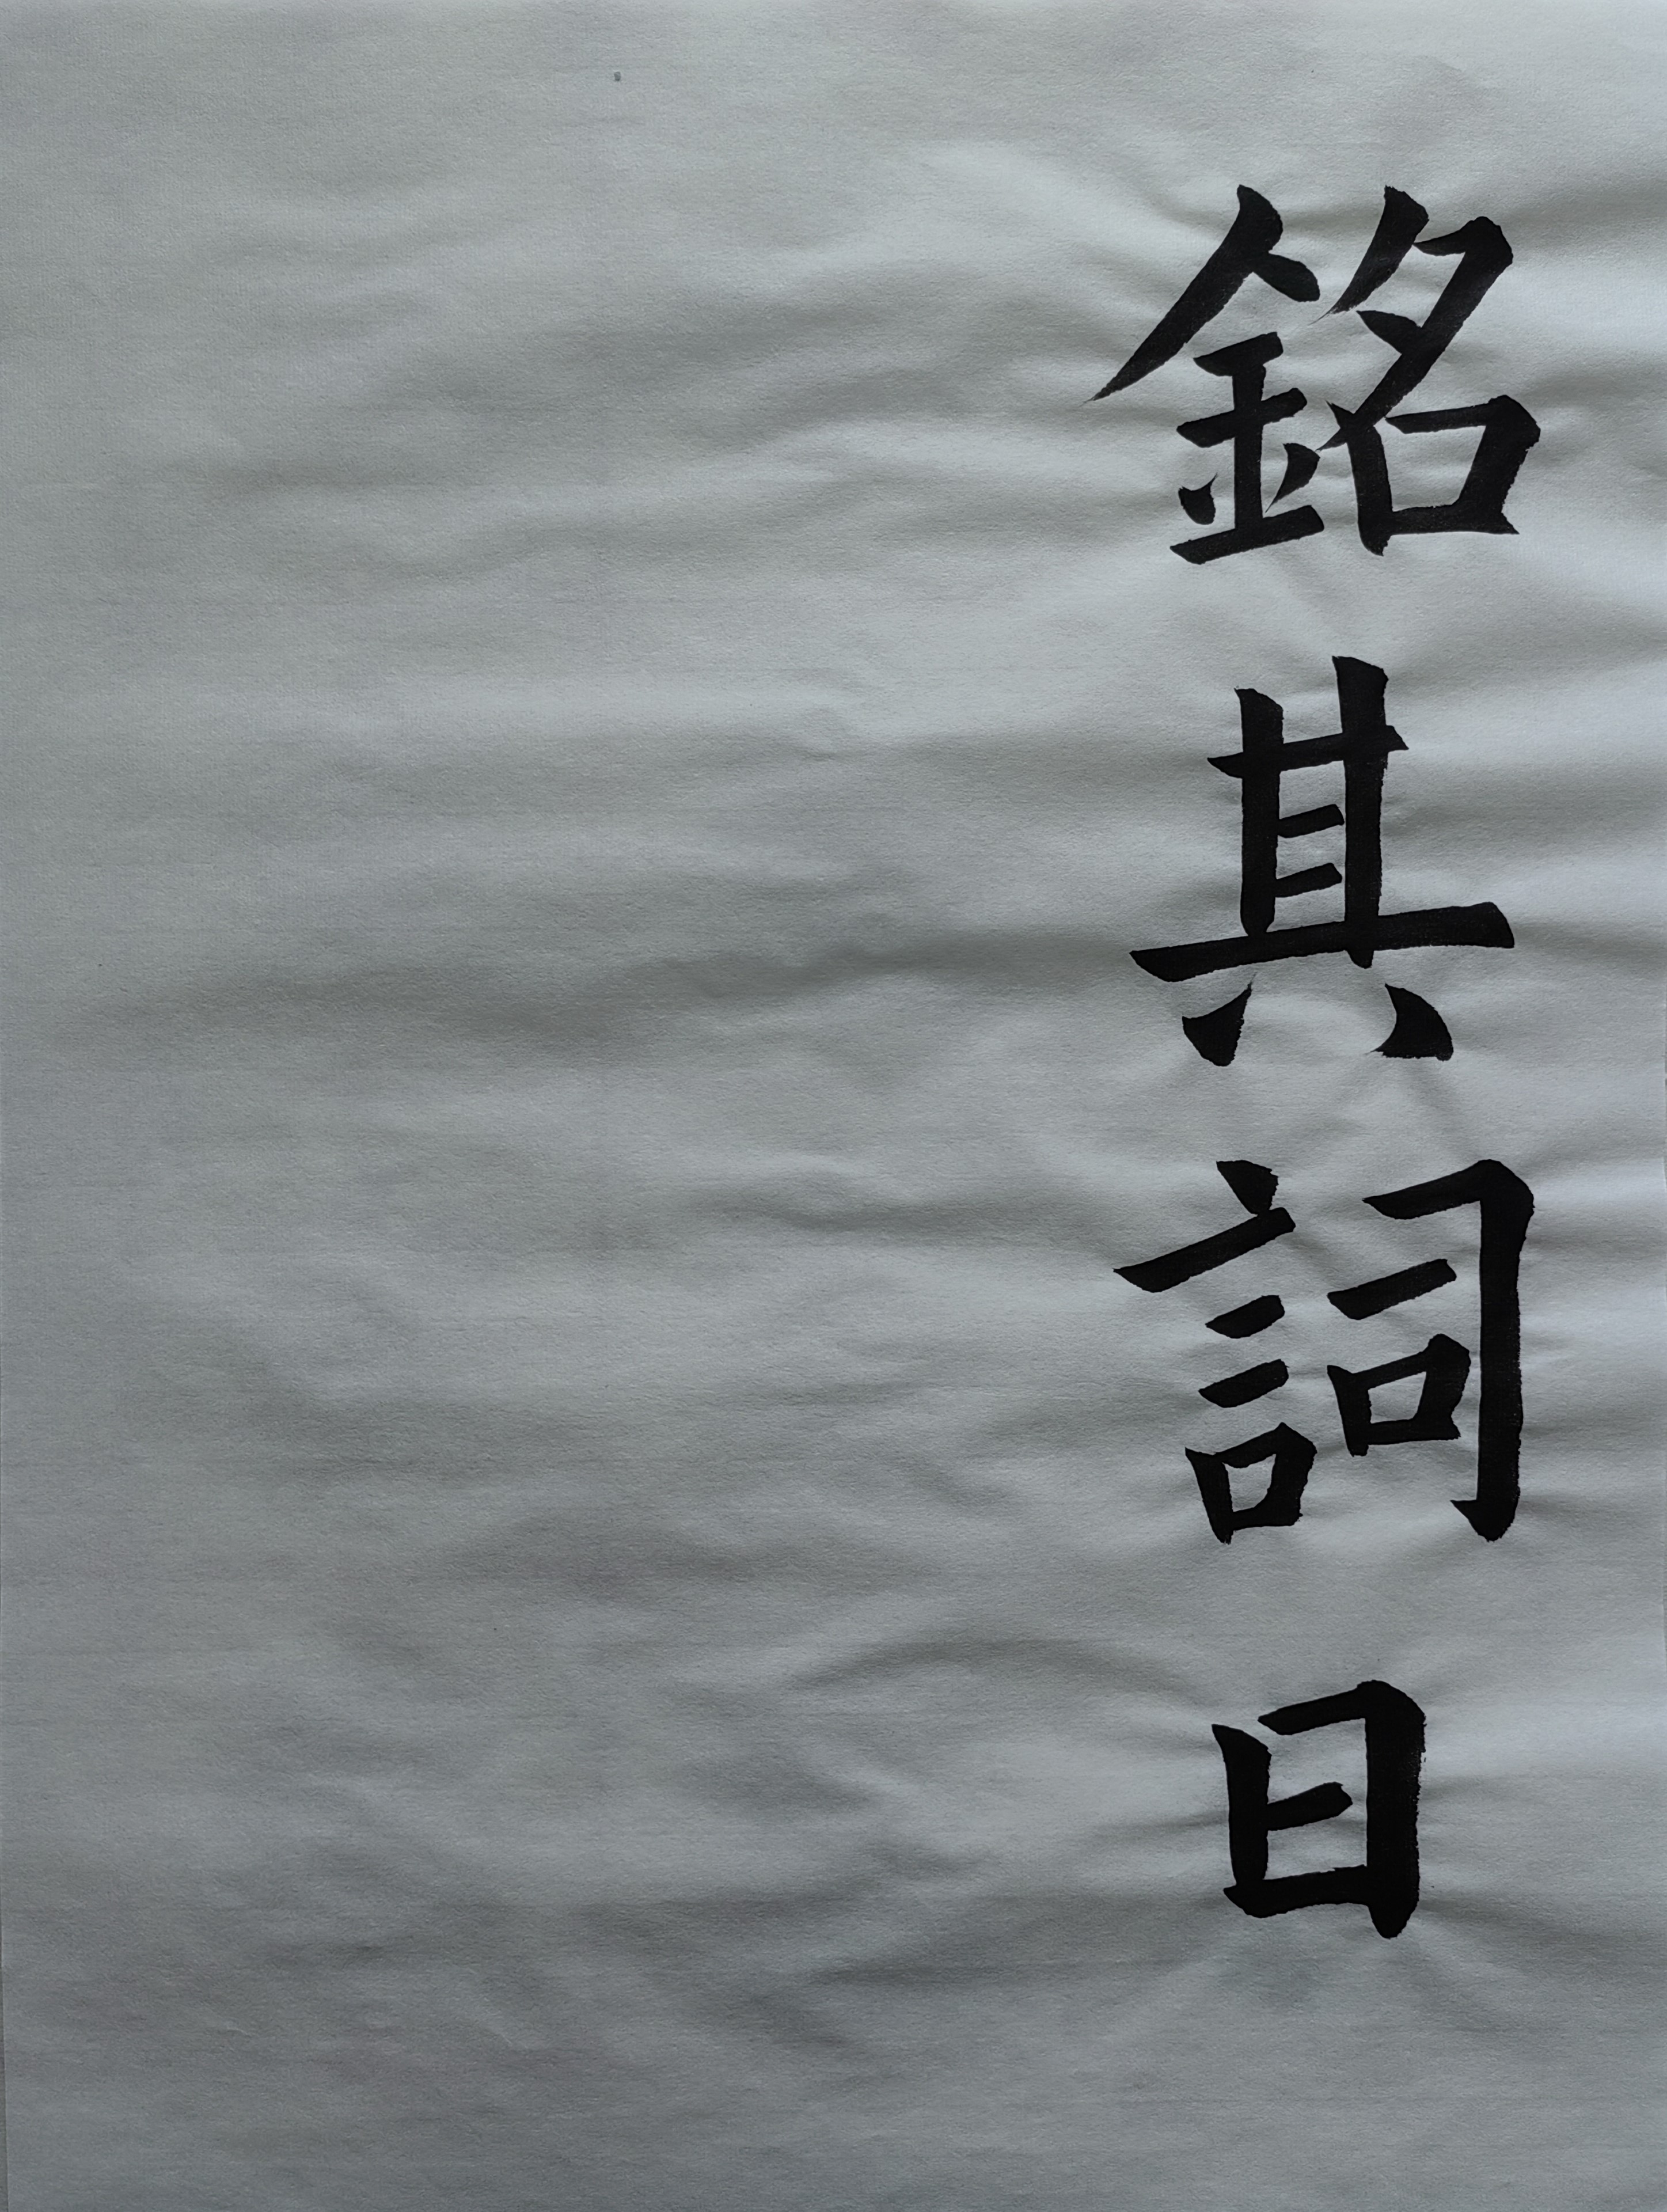 銘其詞曰